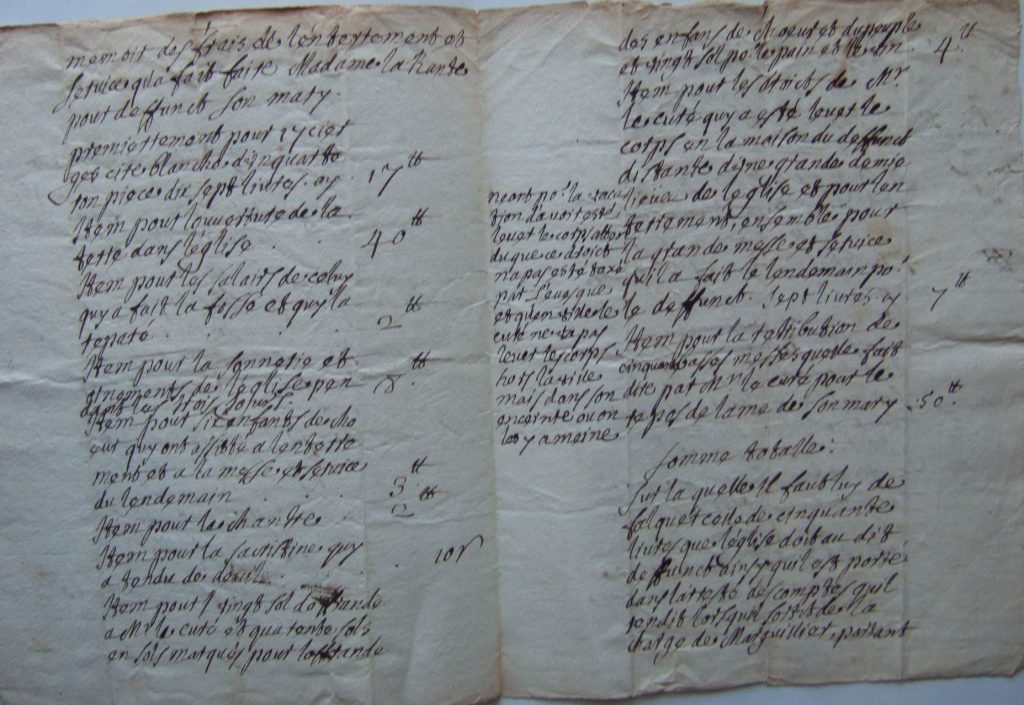 memoir des frais de lenterrement et
service qua fait faire Madame la
pour deffunct son mary.
premierrement pour
ges cire blanche dun quarte
ron piece dix sept livres. cy 17 ₶
Item pour louverture de la
terre dans leglise 40 ₶
Item pour les salairs de celuy
quy a fait la fosse et quy la
reparé 2 ₶
Item pour la sonnerie et
ornements de leglise pen 8 ₶
dant les trois jours.
Item pour six enfants de cho
eur quy ont assisté a lenterre
ment et a la messe et service
du lendemain 3 ₶
Item pour le chantre 2 ₶
Item pour la sacristine quy
a tendu de deuil 10 s
Item pour vingt sol doffrande
a Mr le curé et quarente sols
en sols marqués pour loffrande
des enfans de choeur et du peuple
et vingt sol po.r le pain et le vin 4 ₶
Item pour les droicts de Mr
le curé quy a esté lever le
corps en la maison du deffunct
distante dune grande demie
lieue de leglise et pour len
terrement, ensemble pour
la grande messe et service
quil a fait le lendemain po.r
le deffunct. sept livres. cy 7 ₶
Item pour la retribution de
cinquante basses messes quelle fait
dire par Mr le curé pour le
repos de lame de son mary 50 ₶
neant po.r la vaca
tion davoir esté
lever le corps atten
du que ce droict
na pas esté taxé
par levesque
et quen ville le
curé ne va pas
lever le corps
hors la ville
mais dans son
enceinte ou on
les y ameine
somme totalle:
sur laquelle il faut luy de
falquer celle de cinquante
livres que léglise doit au dit
deffunct ainsy quil est porté
dans larresté des comptes quil
rendit lors quil sortit de la
charge de Marguillier, partant